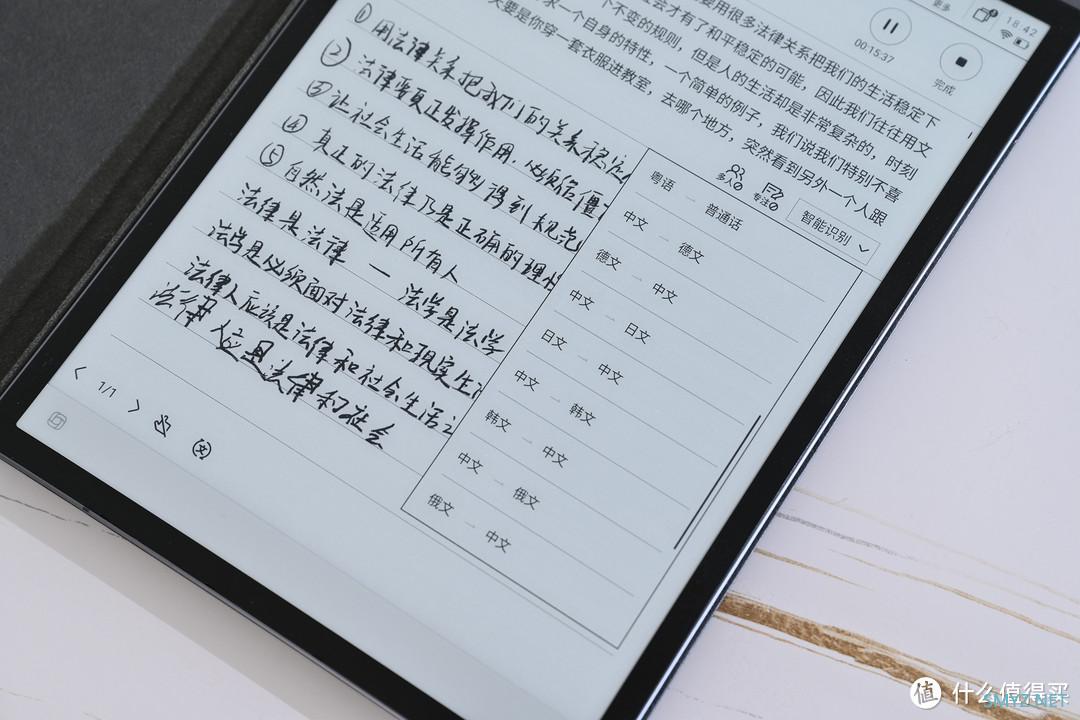 更多
18:42
要用很多法律关系把我们的生活稳定下
会才有了和平稳定的可能，因此我们往往用文
个不变的规则，但是人的生活却是非常复杂的，时刻
求一个自身的特性，一个简单的例子，我们说我们特别不喜
天要是你穿一套衣服进教室，去哪个地方，突然看到另外一个人跟
00:15:37
完成
多人
专注
智能识别
① 用法律关系把我们的关系稳定
② 法律要真正发挥作用，必须信僵
③ 让社会生活能够得到规范
④ 真正的法律乃是正确的理性
⑤ 自然法是适用所有人
法律是法律 — 法学是法学
法学是必须面对法律和现实生活
法律人应该是法律和社会生活之
法律人应是法律和社会
粤语 — 普通话
中文 — 德文
德文 — 中文
中文 — 日文
日文 — 中文
中文 — 韩文
韩文 — 中文
中文 — 俄文
俄文 — 中文
1/1
值 什么值得买
SMYZ.NET